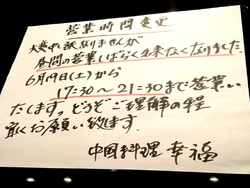 営業時間変更
大変申し訳ありませんが
昼間の営業しばらく出来なくなりました
6月19日(土)から
17:30〜21:30まで営業い
たします。どうぞご理解の程
宜しくお願い致します.
中国料理 幸福